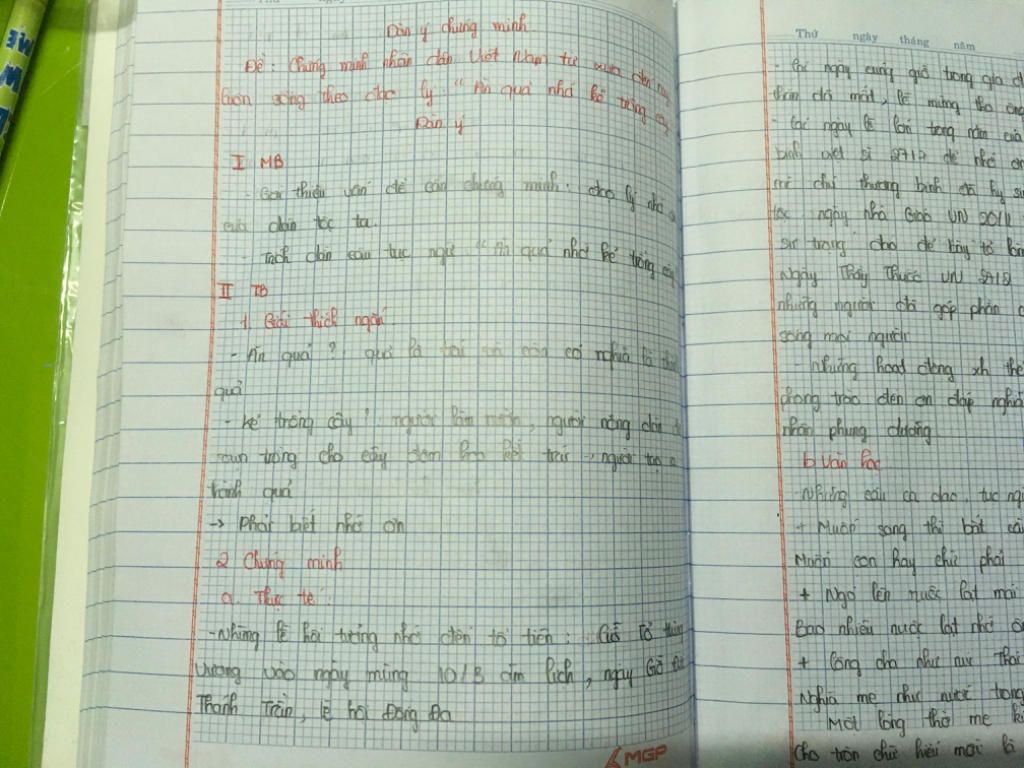 Dàn ý chứng minh
Đề: Chứng minh nhân dân Việt Nam từ xưa đến nay
luôn sống theo đạo lý "Ăn quả nhớ kẻ trồng cây
Dàn ý
I MB
- Giới thiệu vấn đề cần chứng minh: đạo lý nhớ
của dân tộc ta.
- Trích dẫn câu tục ngữ "Ăn quả nhớ kẻ trồng cây
II TB
1. Giải thích ngắn
- Ăn quả? quả là trái có nghĩa là
quả
- kẻ trồng cây?: người làm vườn, người nông dân
vun trồng cho cây đơm hoa kết trái → người tạo
thành quả
→ Phải biết nhớ ơn
2 Chứng minh
a. Thực tế:
- Những lễ hội tưởng nhớ đến tổ tiên: Giỗ Tổ Hùng
Vương vào ngày mùng 10/3 âm lịch, ngày Giỗ Đức
Thánh Trần, lễ hội Đống Đa
MGP
Thứ ngày tháng năm
- Các ngày cúng giỗ trong gia đ
thân đã mất, lễ mừng thọ ông
- Các ngày lễ lớn trong năm của
binh liệt sĩ 27/7 để nhớ ơn
chú thương binh đã hy si
tộc ngày nhà Giáo VN 20/11
sư trọng đạo để bày tỏ lòn
Ngày Thầy Thuốc VN 27/2
những người đã góp phần c
sống mọi người
- Những hoạt động xh thể
phong trào đền ơn đáp nghĩa
nhận phụng dưỡng
b Văn học
- Những câu ca dao, tục ng
+ Muốn sang thì bắt cầ
Muốn con hay chữ phải
+ Ngó lên nuộc lạt mái
Bao nhiêu nuộc lạt nhớ ô
+ Công cha như núi Thái
Nghĩa mẹ như nước trong
Một lòng thờ mẹ k
Cho tròn chữ hiếu mới là